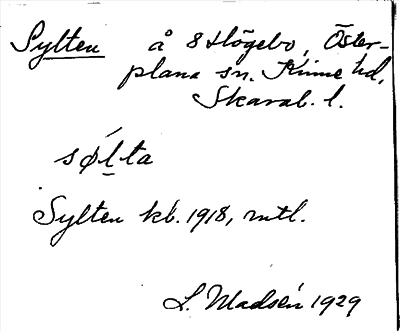 Sylten å 8 Högebo, Öster-
plana sn. Kinne hd,
Skarab. l.
sǿl̠ta
Sylten kb. 1918, mtl.
L. Madsén 1929